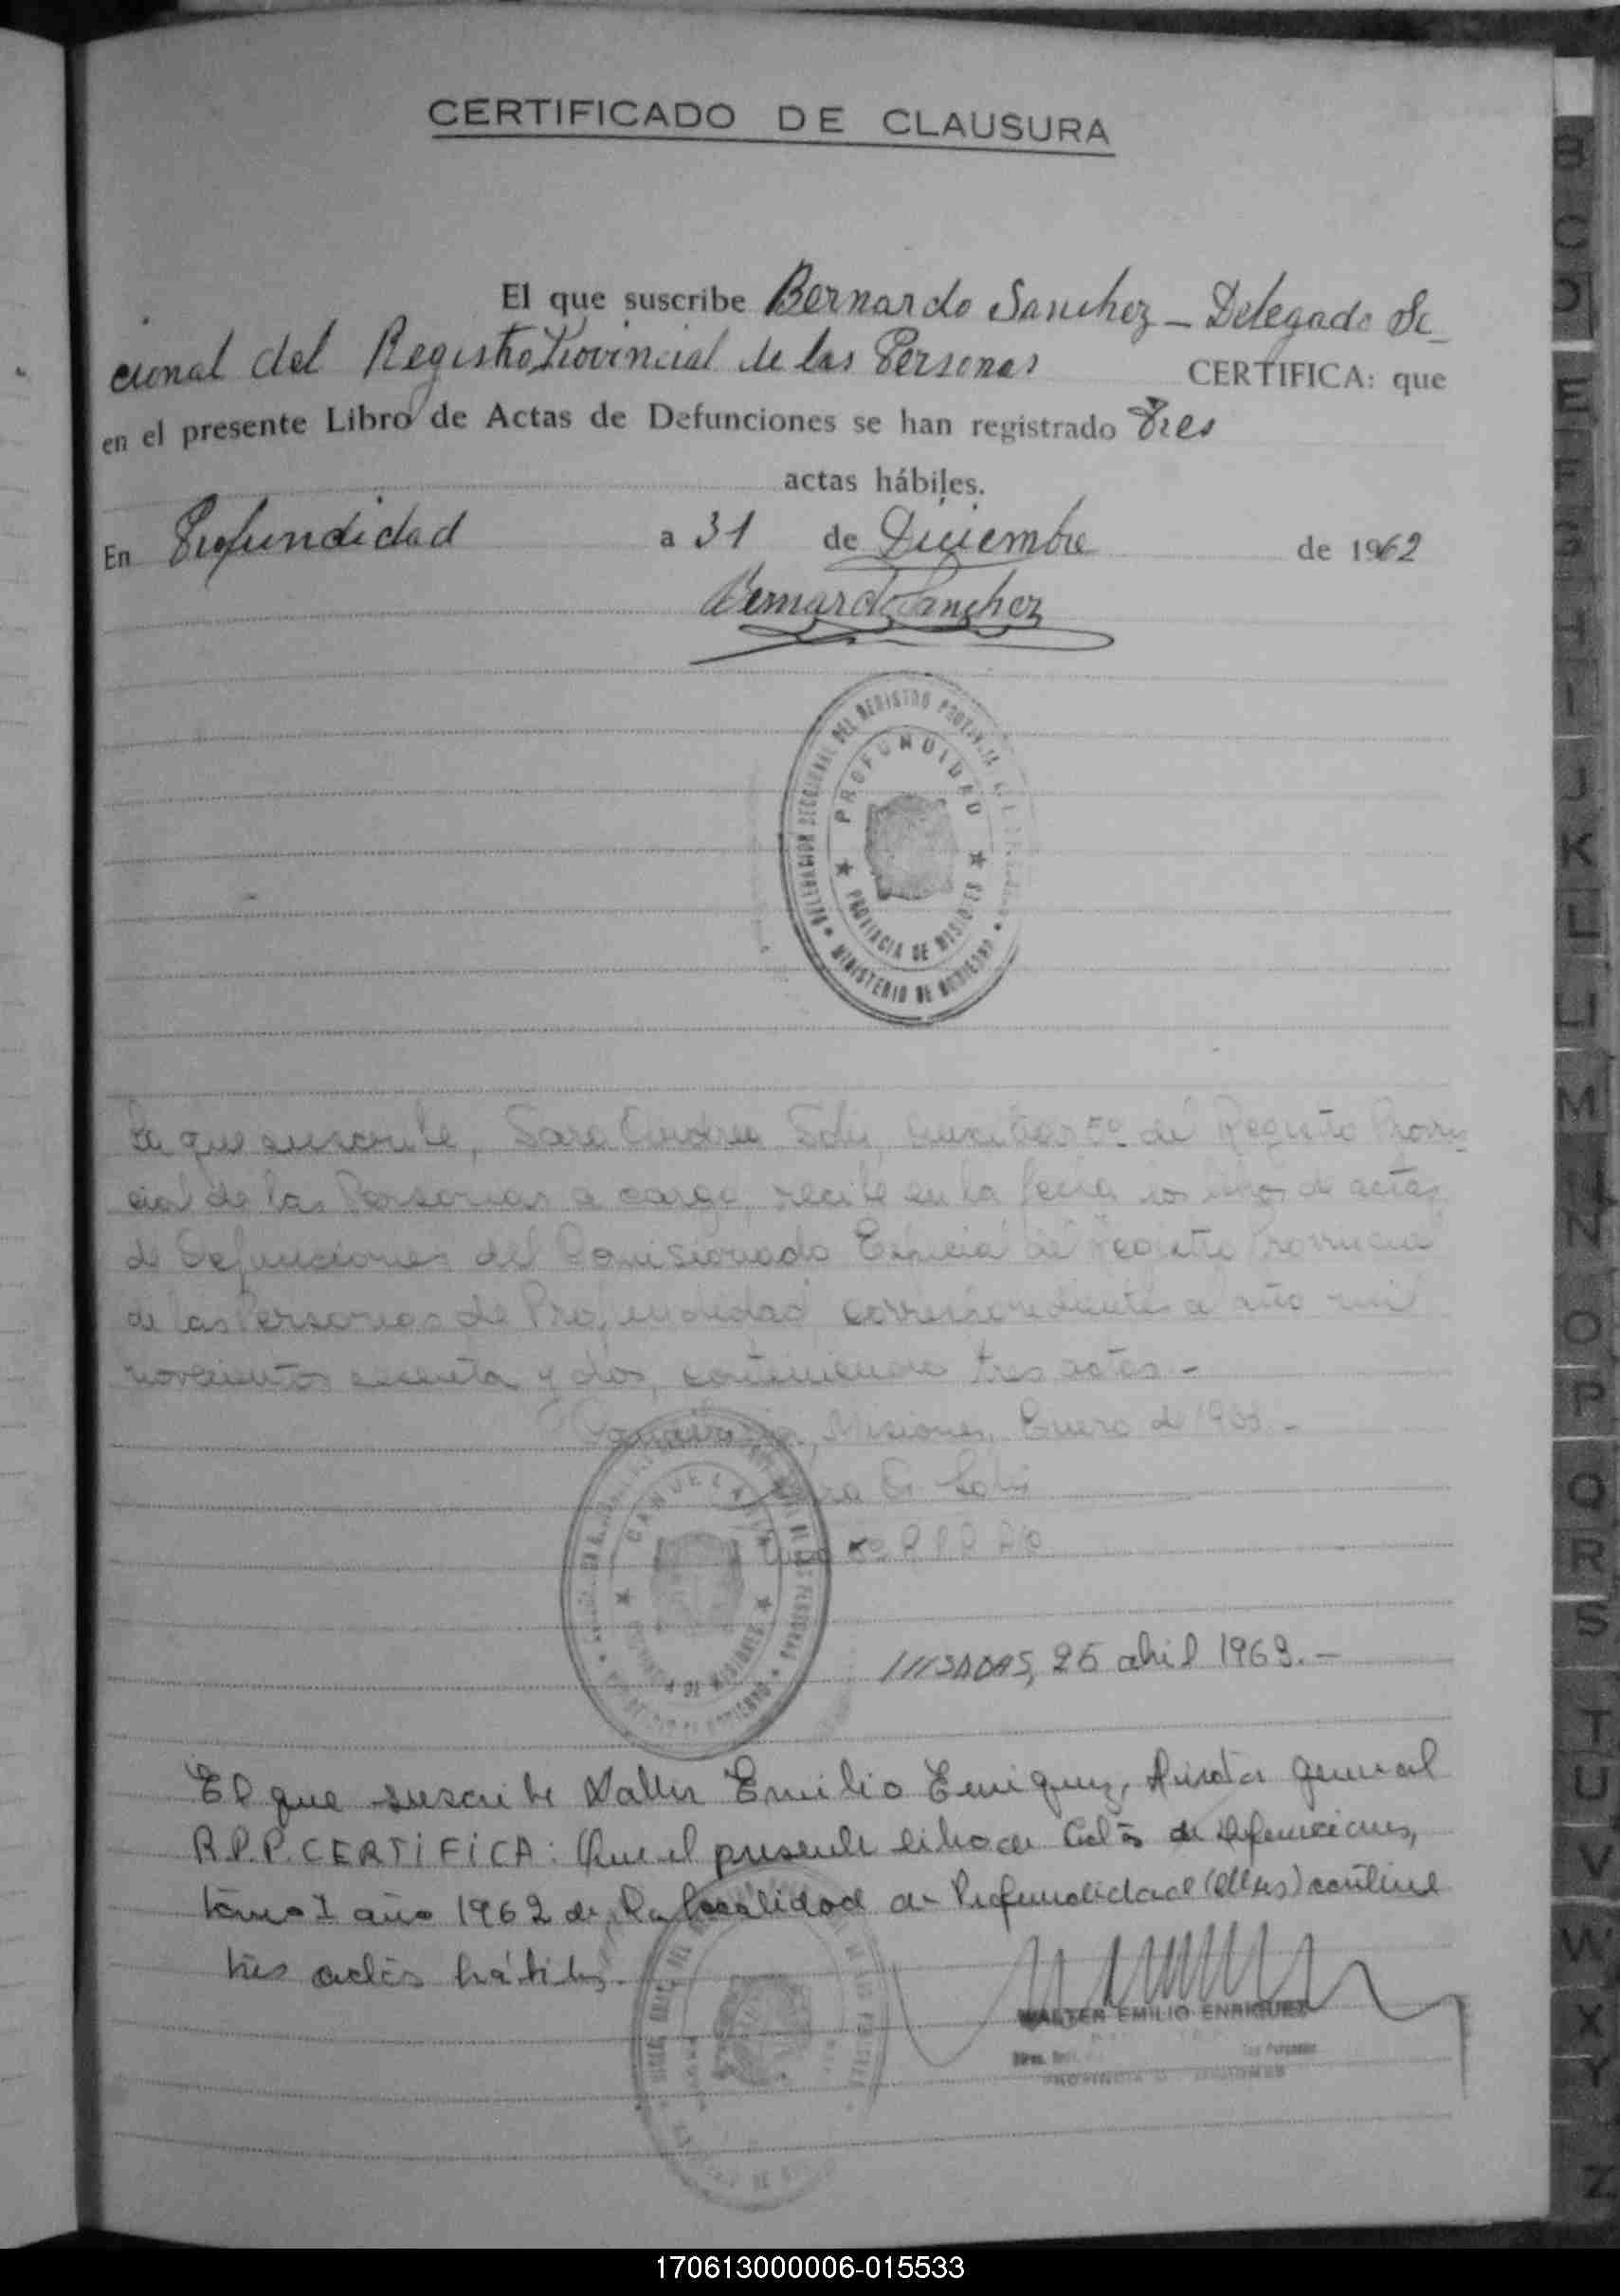 CERTIFICADO DE CLAUSURA
El que suscribe Bernardo Sanchez - Delegado Sec
cional del Registro Provincial de las Personas CERTIFICA: que
en el presente Libro de Actas de Defunciones se han registrado Tres
actas hábiles.
En Profundidad a 31 de Diciembre de 1962
Bernardo Sanchez
DELEGACION SECCIONAL DEL REGISTRO PROVINCIAL
PROFUNDIDAD
PROVINCIA DE MISIONES
MINISTERIO DE GOBIERNO
La que suscribe, Sara Solis auxiliar 5º del Registro Provin-
cial de las Personas a cargo, recibe en la fecha los libros de actas
de Defunciones del Comisionado Especial del Registro Provincial
de las Personas de Profundidad correspondientes al año mil
novecientos sesenta y dos, conteniendo tres actas.-
Candelaria, Misiones, Enero de 1963.-
Solis
CANDELARIA
DE LAS PERSONAS
DE MISIONES
DE GOBIERNO
25 abril 1963.-
El que suscribe Walter Emilio Enriquez, Director General
R.P.P. CERTIFICA: Que el presente libro de Actas de Defunciones,
tomo I año 1962 de la localidad de Profundidad (Mnes) contiene
tres actas hábiles.-
WALTER EMILIO ENRIQUEZ
PROVINCIA DE MISIONES
B
C
D
E
F
G
H
I
J
K
L
LL
M
N
Ñ
O
P
Q
R
S
T
U
V
W
X
Y
Z
170613000006-015533